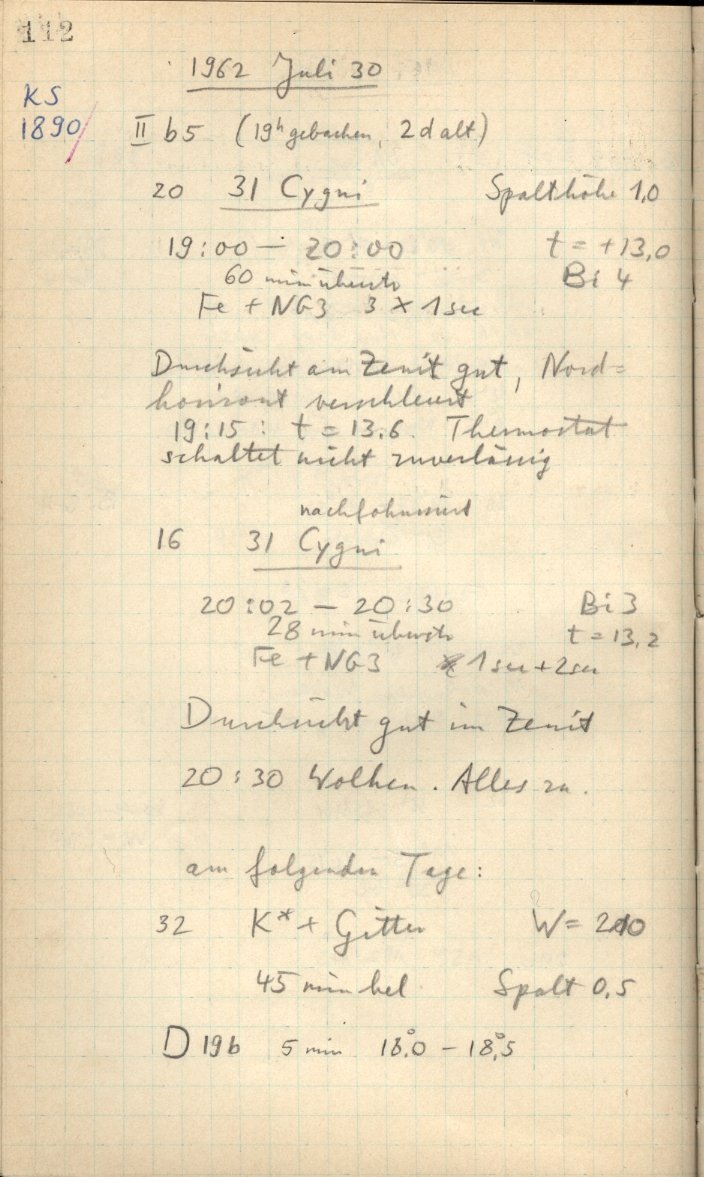 112
1962 Juli 30
KS
1890/
II b5 (19h gebacken, 2d alt)
20 31 Cygni Spalthöhe 1,0
19:00 – 20:00 t = +13,0
60 min überstr Bi 4
Fe + NG3 3 × 1 sec
Durchsicht am Zenit gut, Nord=
horizont verschleiert
19:15 : t = 13.6. Thermostat
schaltet nicht zuverlässig
nachfokussiert
16 31 Cygni
20:02 – 20:30 Bi 3
28 min überstr t = 13,2
Fe + NG3 1 sec + 2 sec
Durchsicht gut im Zenit
20:30 Wolken. Alles zu.
am folgenden Tage:
32 K* + Gitter W = 210
45 min bel Spalt 0,5
D 19b 5 min 18°,0 – 18°,5